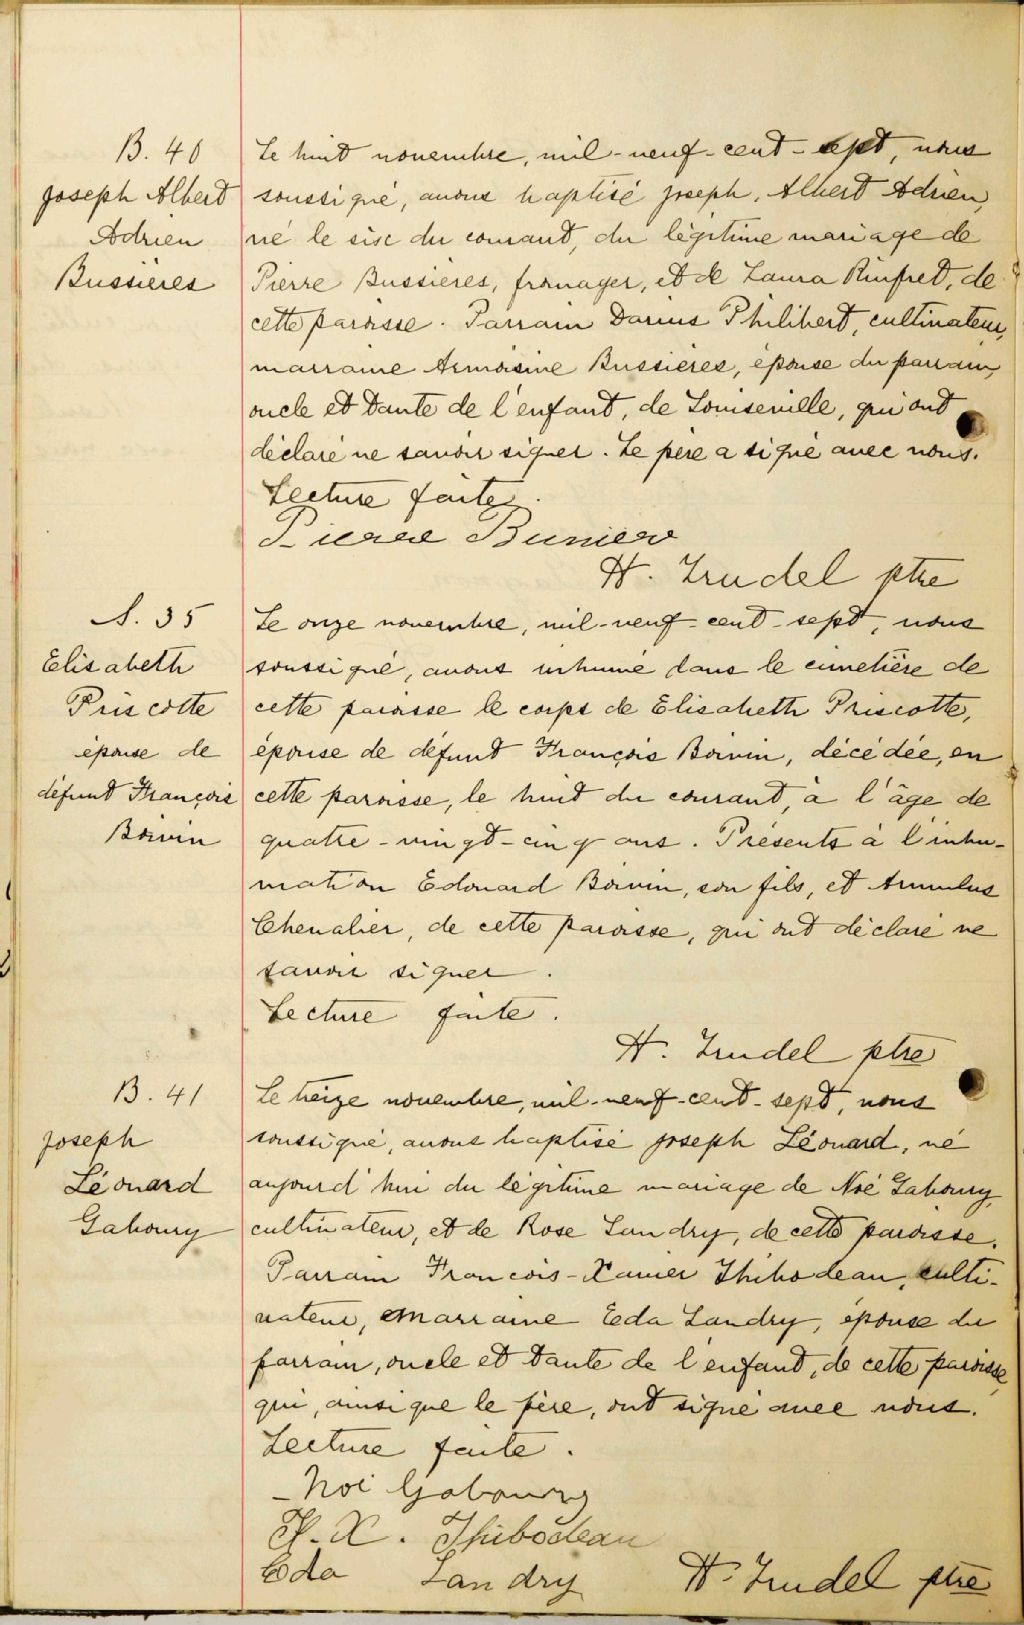 B. 40
Joseph Albert
Adrien
Bussières
Le huit novembre, mil-neuf-cent-sept, nous
soussigné, avons baptisé Joseph, Albert Adrien,
né le six du courant, du légitime mariage de
Pierre Bussières, fromager, et de Laura Rinfret, de
cette paroisse. Parrain Darius Philibert, cultivateur,
marraine Armoisine Bussières, épouse du parrain,
oncle et tante de l'enfant, de Louiseville, qui ont
déclaré ne savoir signer. Le père a signé avec nous.
Lecture faite.
Pierre
H. Trudel ptre
S. 35
Elisabeth
Priscotte
épouse de
défunt François
Boivin
Le onze novembre, mil-neuf-cent-sept, nous
soussigné, avons inhumé dans le cimetière de
cette paroisse le corps de Elisabeth Priscotte,
épouse de défunt François Boivin, décédée, en
cette paroisse, le huit du courant, à l'âge de
quatre-vingt-cinq ans. Présents à l'inhu-
mation Edouard Boivin, son fils, et
Chevalier, de cette paroisse, qui ont déclaré ne
savoir signer.
Lecture faite.
H. Trudel ptre
B. 41
Joseph
Léonard
Gaboury
Le treize novembre, mil-neuf-cent-sept, nous
soussigné, avons baptisé Joseph Léonard, né
aujourd'hui du légitime mariage de Noé Gaboury,
cultivateur, et de Rose Landry, de cette paroisse.
Parrain François-Xavier Thibodeau, culti-
vateur, marraine Eda Landry, épouse du
parrain, oncle et tante de l'enfant, de cette paroisse,
qui, ainsi que le père, ont signé avec nous.
Lecture faite.
Noé Gaboury
F. X. Thibodeau
Eda Landry
H. Trudel ptre